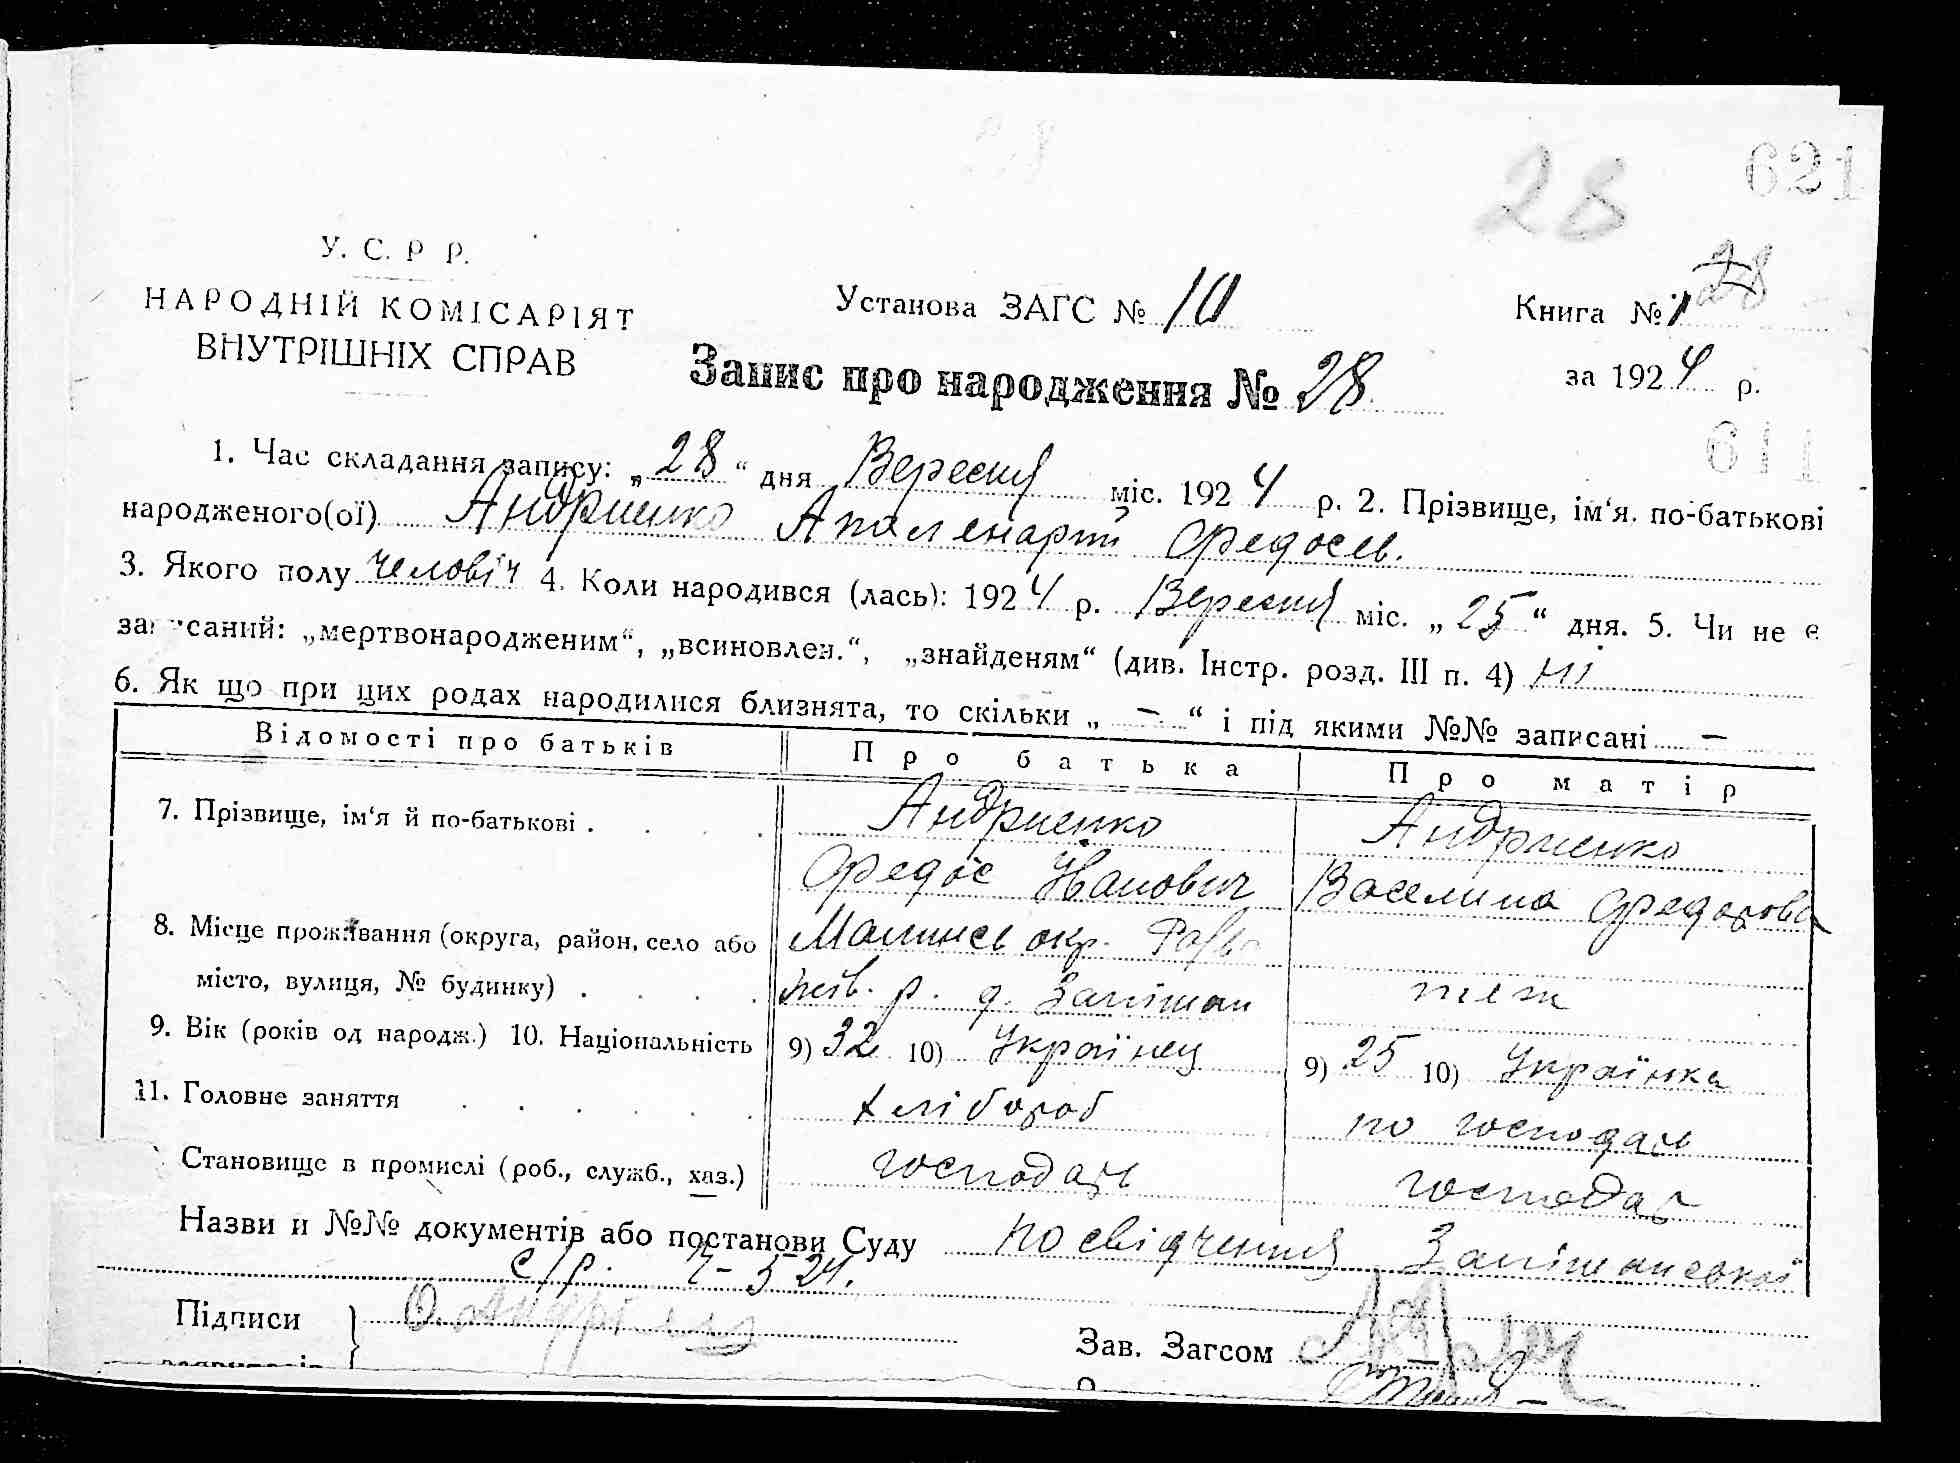 28
621
У. С. Р Р.
НАРОДНІЙ КОМІСАРІЯТ
ВНУТРІШНІХ СПРАВ
Установа ЗАГС № 10
Книга № 1 28
за 1924 р.
Запис про народження № 28
611
1. Час складання запису: „28“ дня Вересня міс. 1924 р. 2. Прізвище, ім‘я, по-батькові
народженого(ої) Андриенко Апаленарій Федосев.
3. Якого полу человіч 4. Коли народився (лась): 1924 р. Вересня міс. „25“ дня. 5. Чи не є
саний: „мертвонародженим“, „всиновлен.“, „знайденям“ (див. Інстр. розд. III п. 4) ні
6. Як що при цих родах народилися близнята, то скільки „ — “ і під якими №№ записані —
Відомості про батьків Про батька Про матір
7. Прізвище, ім‘я й по-батькові . Андриенко Андриенко
Федос Іванович Васелина Федорова
8. Місце проживання (округа, район, село або Малинсь окр.
місто, вулиця, № будинку) . р. д. Запішан теж
9. Вік (років од народж.) 10. Національність 9) 32 10) Українец 9) 25 10) Українка
11. Головне заняття хлібороб по господарь
Становище в промислі (роб., служб., хаз.) господарь господар
Назви и №№ документів або постанови Суду посвідчення Запішанської
с/р.
Підписи О. Андрі
Зав. Загсом